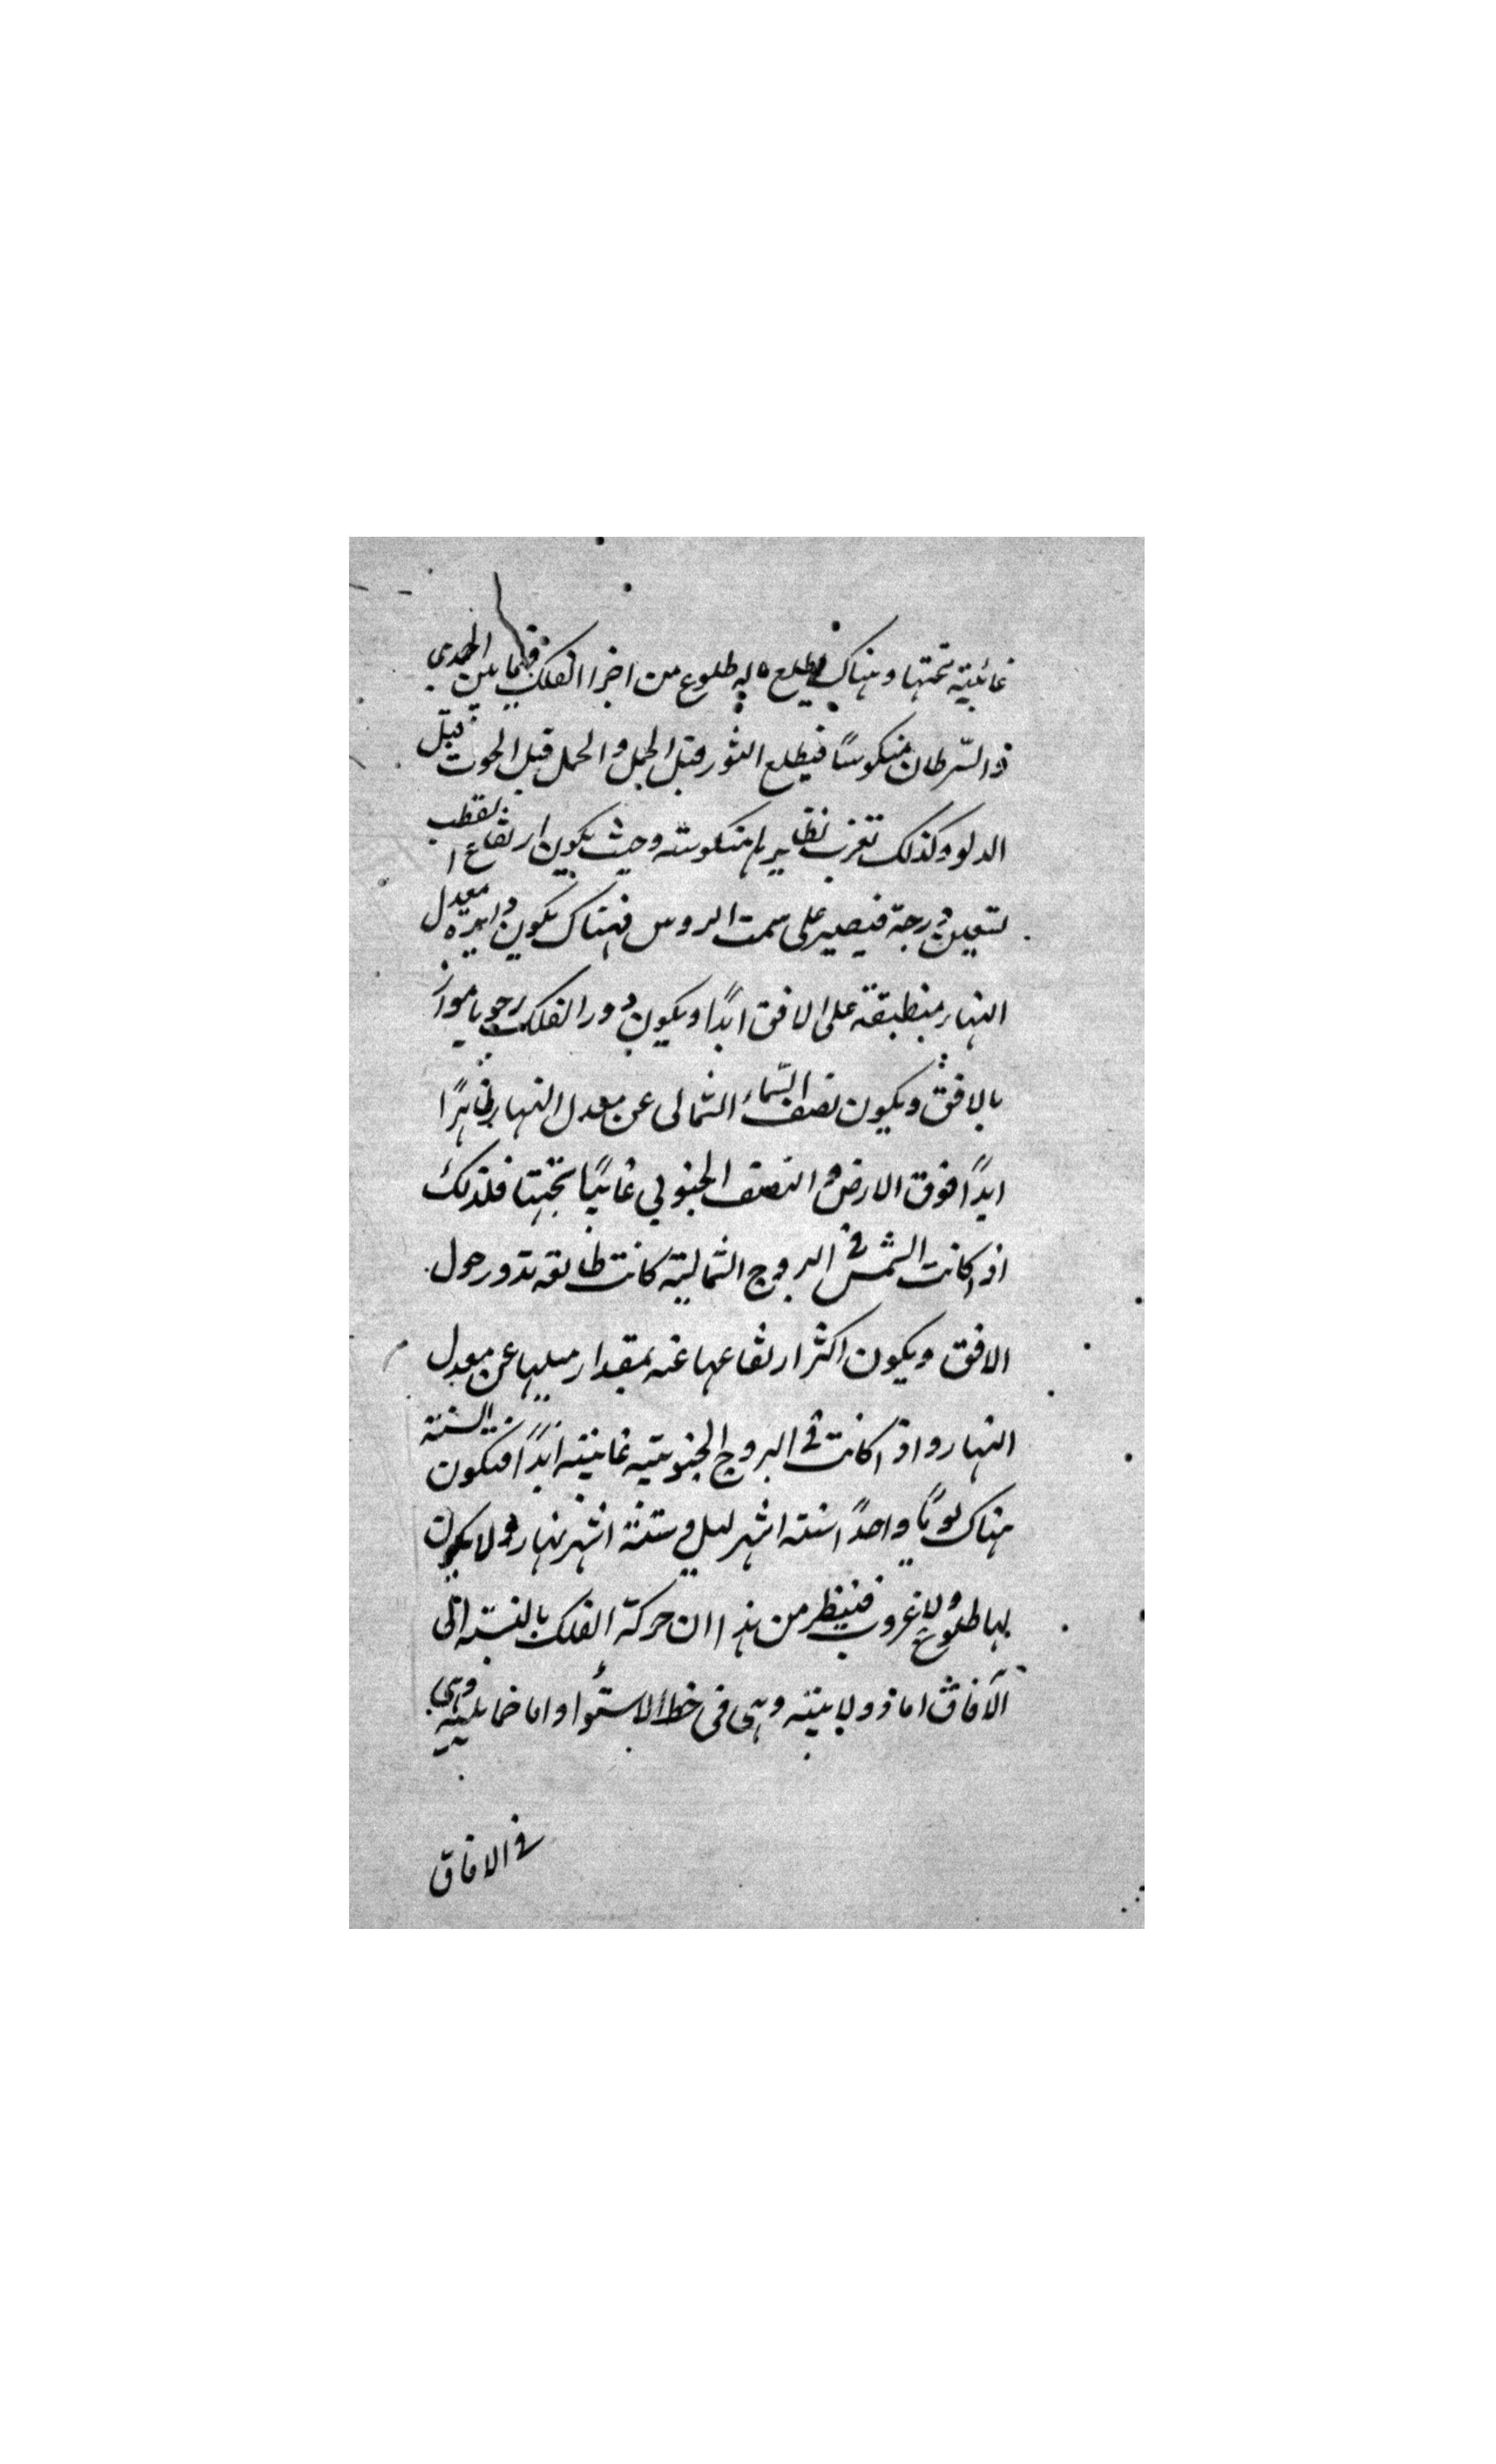 غائبية تحتها وهناك يطلع ماله طلوع من اجزا الفلك فيما بين الجدي
والسّرطان منكوسًا فيطلع الثور قبل الحمل والحمل قبل الحوت قبل
الدلو وكذلك تغرب نظايرها منكوسته وحيث يكون ارتفاع القطب
تسعين درجة فيصير على سمت الروس فهناك يكون دايرة معدل
النهار منطبقة على الافق ابدًا ويكون دور الفلك رحويا مواز
بالافق ويكون نصف السّماء الشمالى عن معدل النهار ظاهرًا
ابدًا فوق الارض والنصف الجنوبي غائبًا تحتها فلذلك
اذا كانت الشمس في البروج الشمالية كانت طالعة تدور حول
الافق ويكون اكثر ارتفاعها عنه بمقدار ميلها عن معدل
النهار واذا كانت في البروج الجنوبية غائبية ابدًا فتكون السنة
هناك يومًا واحدًا ستة اشهر ليل وستة اشهر نهار ولا يكون
لها طلوع ولا غروب فينظر من هذا ان حركة الفلك بالنسبة الى
الآفاق اما دولابية وهى فى خط الاستوا واما حمايلية وهي
في الافاق